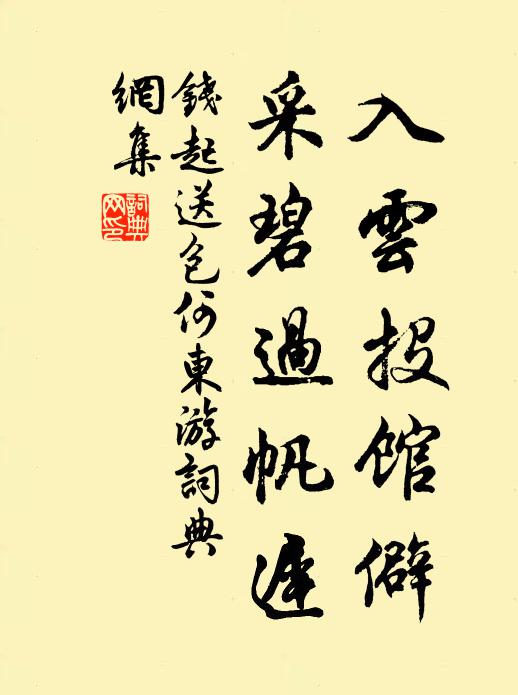 入雲投館僻
采碧過帆遲
錢起送包何東游詞典
網集
詞典
网印